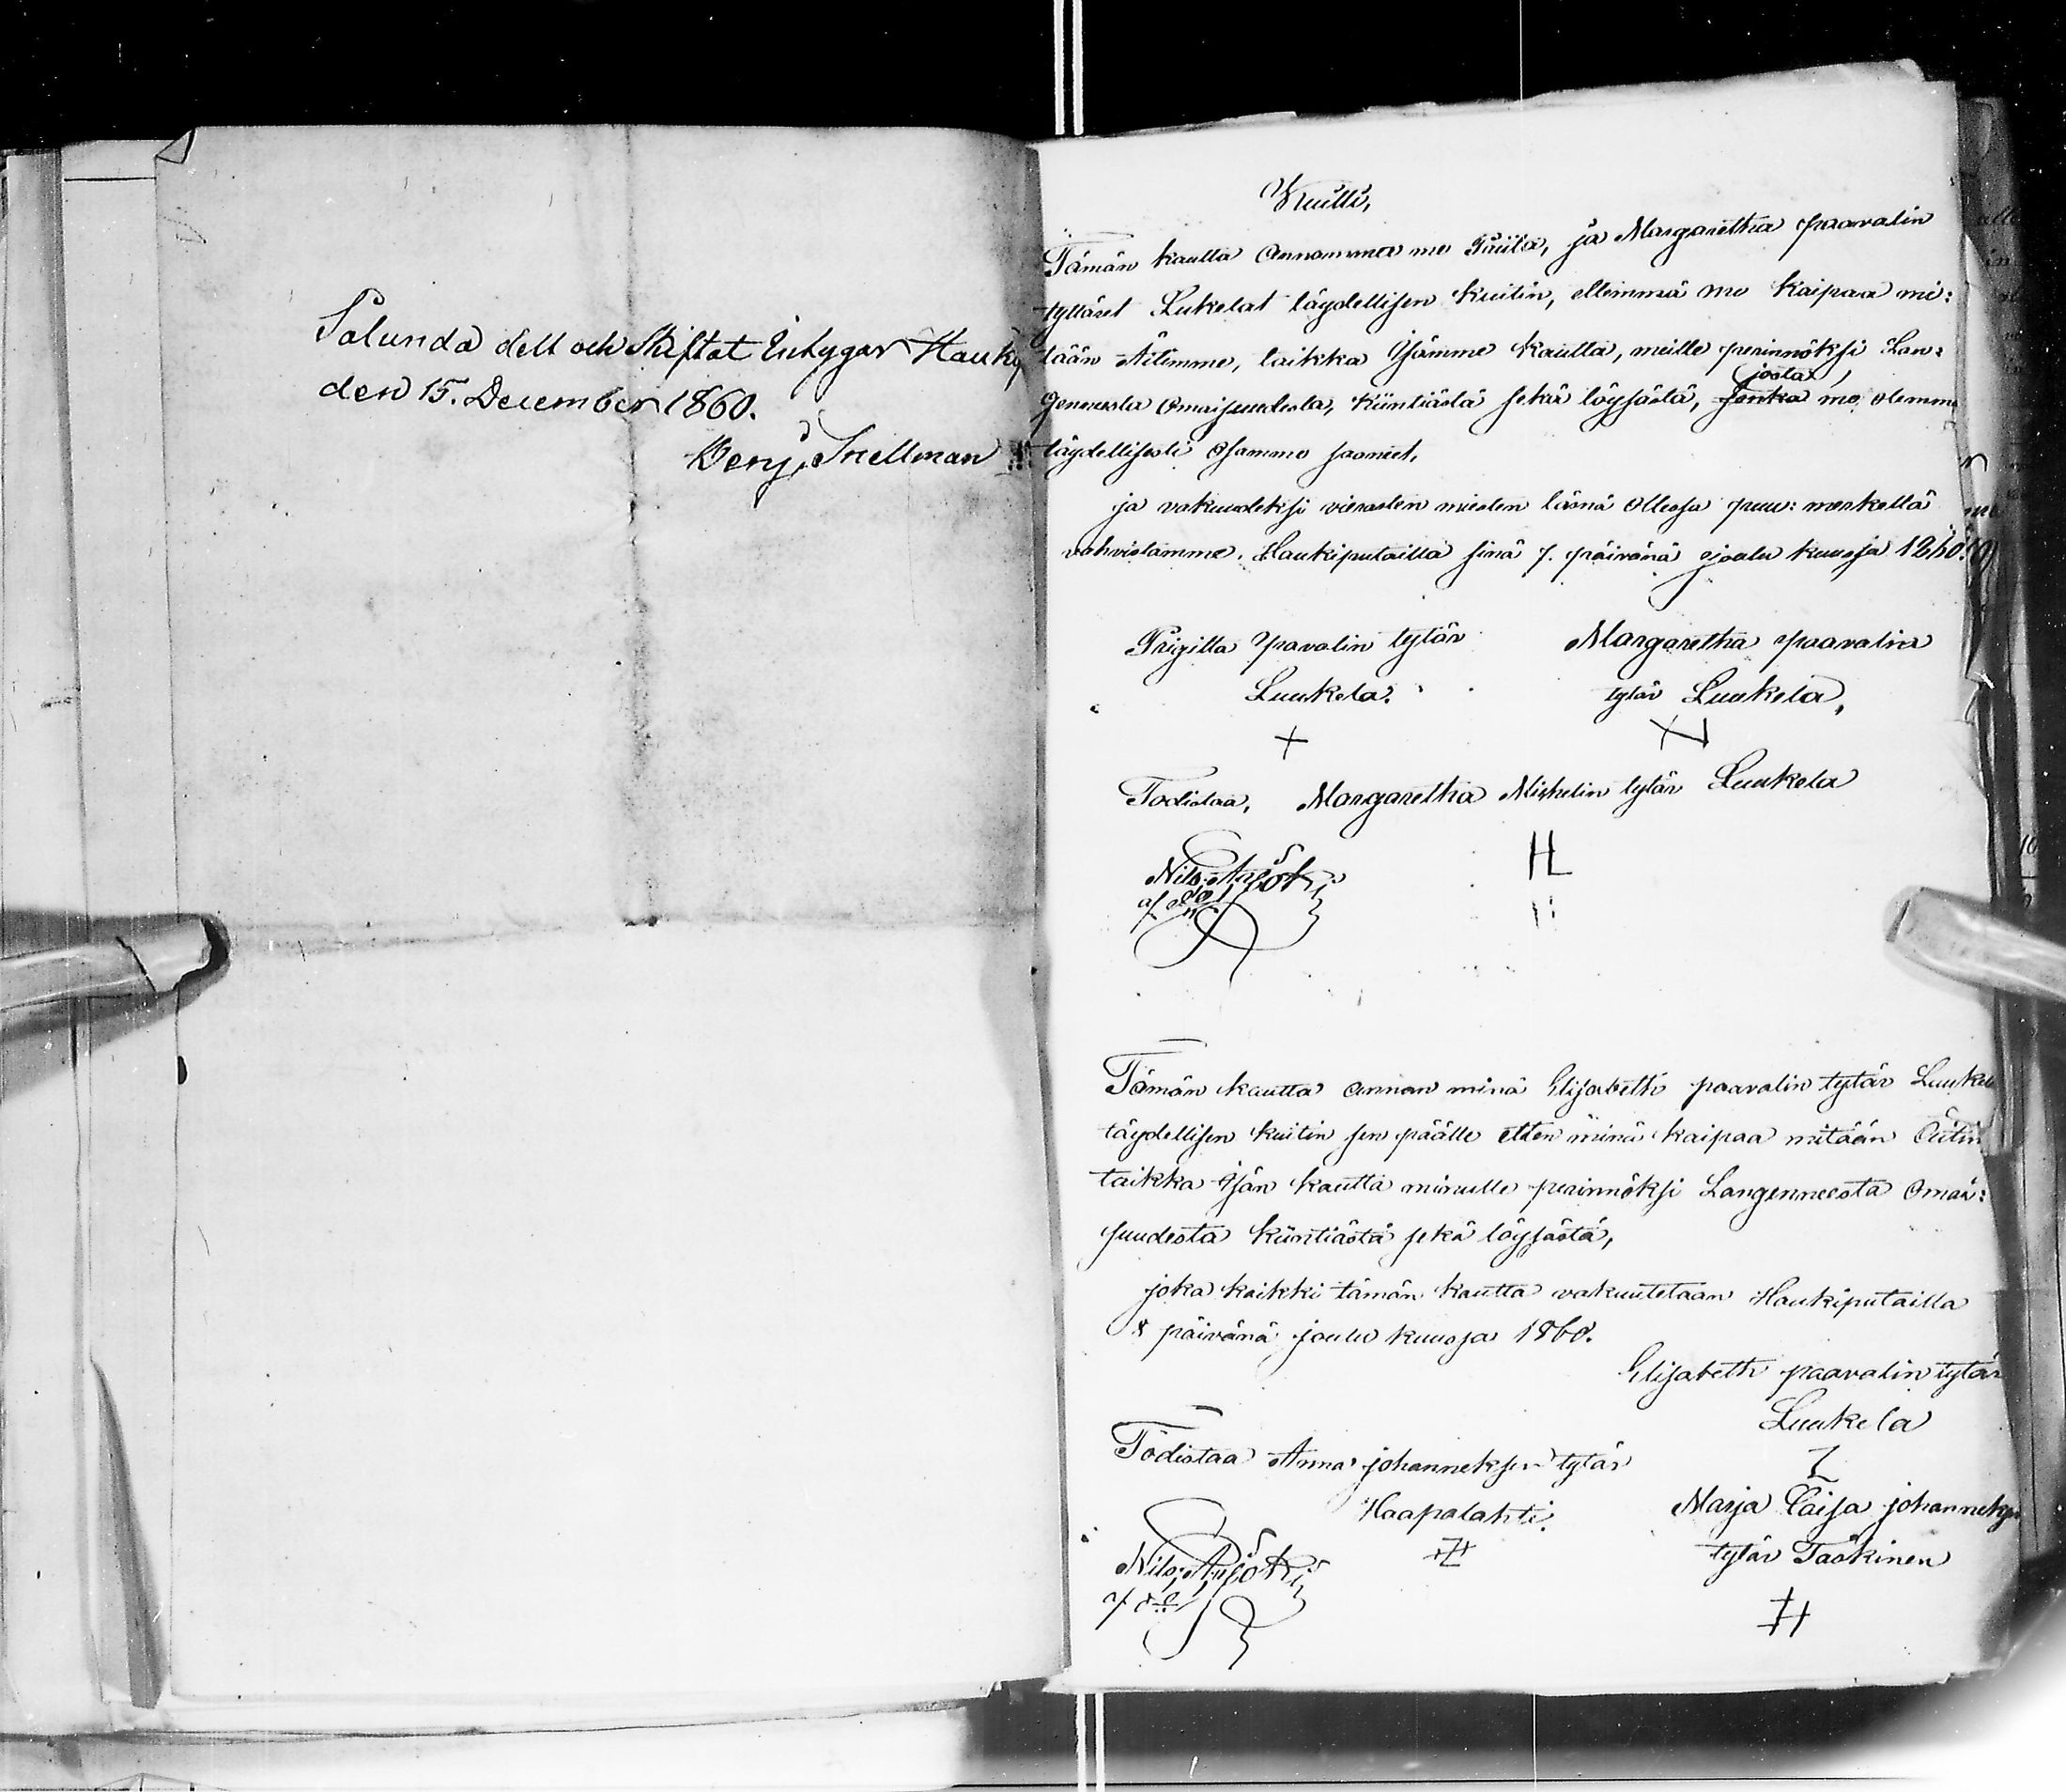 Sålunda delt och Skiftat Intygar Hauki
den 15. December 1860.
Benj. Snellman
Kuitti,
Tämän kautta Annamma me Priita, ja Margaretha paavalin
tyttäret Lukelat täydellisen kuitin, ettemmä me kaipaa mi:
tään Äitimme, taikka Ysämme kautta, meille perinnöksi Lan:
genneesta Omaisuudesta, kiintiästä sekä löysästä, josta me olemme
täydellisesti Osamme saaneet,
ja vakuudeksi vierasten miesten läsnä Ollessa puu: merkellä
vahvistamme. Haukiputailla sinä 7. päivänä joulu kuussa 1860.
Prigitta Paavalin tytär Margaretha paavalin
Luukela. tytär Luukela,
Todistaa, Margaretha Mickelin tytär Luukela
Nils
Tämän kautta annan minä Elisabeth paavalin tytär Luukel
täydellisen kuitin sen päälle etten minä kaipaa mitään Äitin
taikka Ysän kautta minulle perinnöksi Langenneesta Omai:
suudesta kiintiästä sekä löysästä,
joka kaikki tämän kautta vakuutetaan Haukiputailla
8 päivänä joulu kuussa 1860.
Elisabeth paavalin tytär
Luukela
Todistaa Anna johanneksen tytär
Haapalahti. Marja Caisa johannekse
Nils tytär Taskinen